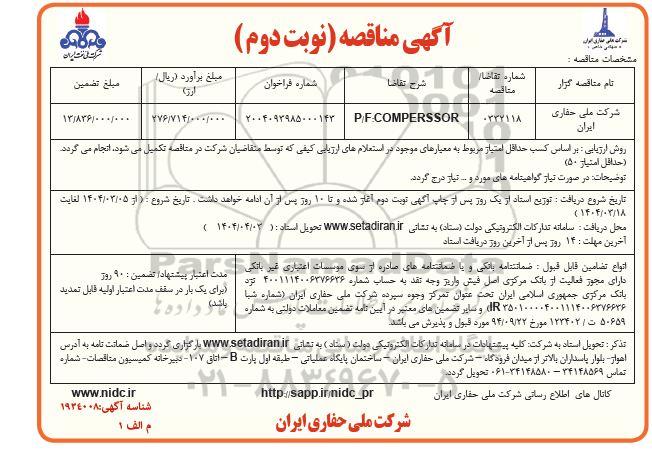 آگهی مناقصه (نوبت دوم)
شرکت ملی حفاری ایران
(سهامی خاص)
شرکت ملی نفت ایران
مشخصات مناقصه :
نام مناقصه گزار
شماره تقاضا/ مناقصه
شرح تقاضا
شماره فراخوان
مبلغ برآورد (ریال/ ارز)
مبلغ تضمین
شرکت ملی حفاری ایران
۰۳۳۷۱۱۸
P/F.COMPERSSOR
۲۰۰۴۰۹۳۹۸۵۰۰۰۱۴۳
۲۷۶/۷۱۴/۰۰۰/۰۰۰
۱۳/۸۳۶/۰۰۰/۰۰۰
روش ارزیابی : بر اساس کسب حداقل امتیاز مربوط به معیارهای موجود در استعلام های ارزیابی کیفی که توسط متقاضیان شرکت در مناقصه تکمیل می شود، انجام می گردد.
(حداقل امتیاز ۵۰)
توضیحات: در صورت نیاز گواهینامه های مورد و ... نیاز درج گردد.
تاریخ شروع دریافت : توزیع اسناد از یک روز پس از چاپ آگهی نوبت دوم آغاز شده و تا ۱۰ روز پس از آن ادامه خواهد داشت . تاریخ شروع : ( از ۱۴۰۴/۰۳/۰۵ لغایت
۱۴۰۴/۰۳/۱۸ )
محل دریافت : سامانه تدارکات الکترونیکی دولت (ستاد) به نشانی www.setadiran.ir تحویل اسناد : ( ۱۴۰۴/۰۴/۰۳ )
آخرین مهلت : ۱۴ روز پس از آخرین روز دریافت اسناد
انواع تضامین قابل قبول : ضمانتنامه بانکی و یا ضمانتنامه های صادره از سوی موسسات اعتباری غیر بانکی
دارای مجوز فعالیت از بانک مرکزی اصل فیش واریز وجه نقد به حساب شماره ۴۰۰۱۱۱۴۰۰۶۳۷۶۶۳۶ نزد
بانک مرکزی جمهوری اسلامی ایران تحت عنوان تمرکز وجوه سپرده شرکت ملی حفاری ایران (شماره شبا
IR ۳۵۰۱۰۰۰۰۴۰۰۱۱۱۴۰۰۶۳۷۶۶۳۶) و سایر تضمین های معتبر در آیین نامه تضمین معاملات دولتی به شماره
۵۰۶۵۹ ت / ۱۲۳۴۰۲ مورخ ۹۴/۰۹/۲۲ مورد قبول و پذیرش می باشد.
مدت اعتبار پیشنهاد/ تضمین : ۹۰ روز
(برای یک بار در سقف مدت اعتبار اولیه قابل تمدید
باشد)
تذکر : تحویل اسناد به شرکت: کلیه پیشنهادات در سامانه تدارکات الکترونیکی دولت (ستاد ) به نشانی www.setadiran.ir بارگزاری گردد و اصل ضمانت نامه به آدرس
اهواز- بلوار پاسداران بالاتر از میدان فرودگاه – شرکت ملی حفاری ایران – ساختمان پایگاه عملیاتی – طبقه اول پارت B – اتاق ۱۰۷- دبیرخانه کمیسیون مناقصات- شماره
تماس ۳۴۱۴۸۵۶۹ – ۳۴۱۴۸۵۸۰-۰۶۱ تحویل گردد.
کانال های اطلاع رسانی شرکت ملی حفاری ایران
http://sapp.ir/nidc_pr
www.nidc.ir
شناسه آگهی:۱۹۳۴۰۰۸
م الف ۱
شرکت ملی حفاری ایران
ParsNamadData
۰۲۱-۸۸۳۴۹۶۷۰-۵